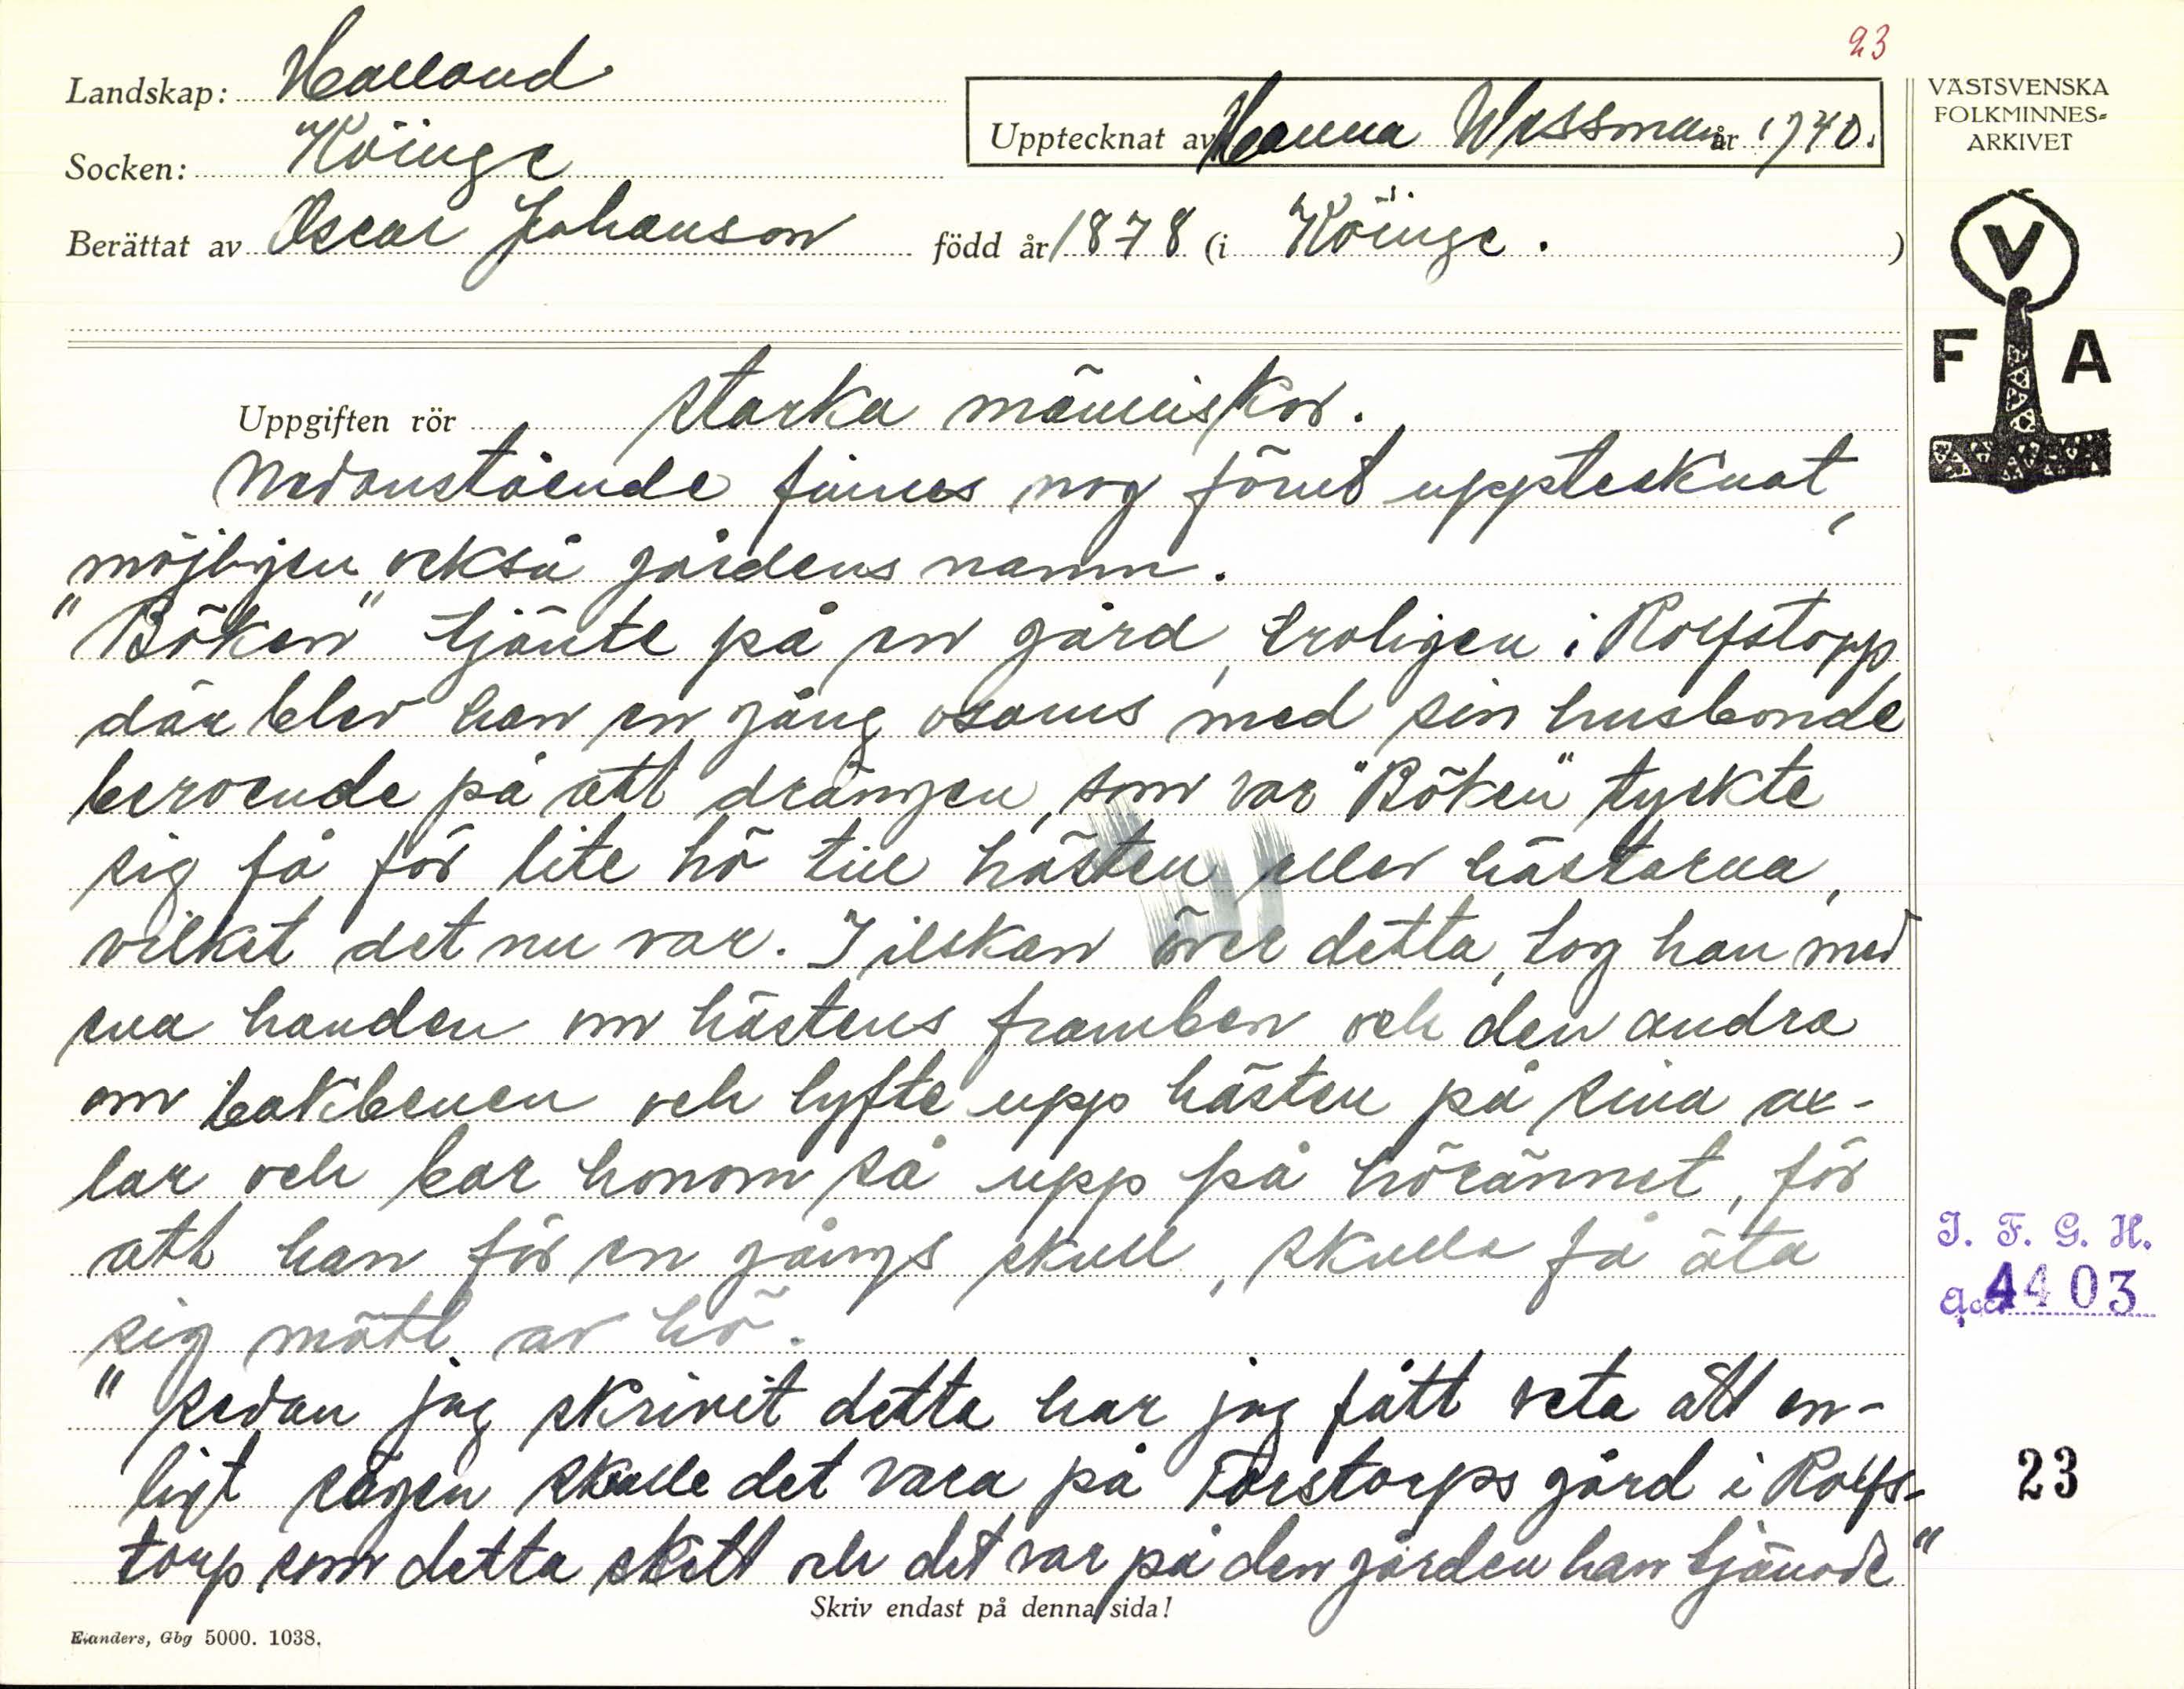 23
Landskap: Halland
Socken: Köinge
Upptecknat av Hanna Wessman år 1940.
Berättat av Oscar Johanson född år 1878 (i Köinge. )
VÄSTSVENSKA
FOLKMINNES-
ARKIVET
V
F A
Uppgiften rör starka människor.
Nedanstående finnes nog förut upptecknat,
möjligen också gårdens namn.
"Böken" tjänte på en gård, troligen i Rolfstopp
där blev han en gång osams med sin husbonde
beroende på att drängen, som var "Böken" tyckte
sig få för lite hö till hästen eller hästarna,
vilket det nu var. I ilskan över detta, tog han med
ena handen om hästens framben och den andra
om bakbenen och lyfte upp hästen på sina ax-
lar och bar honom så upp på hörännet, för
att han för en gångs skull, skulle få äta
sig mätt av hö.
" Sedan jag skrivit detta har jag fått veta att en-
ligt sägen skulle det vara på Torstorps gård i Rolfs-
torp som detta skett och det var på den gården han tjänade"
I. F. G. H.
Acc. 4403
23
Skriv endast på denna sida!
Elanders, Gbg 5000. 1038.